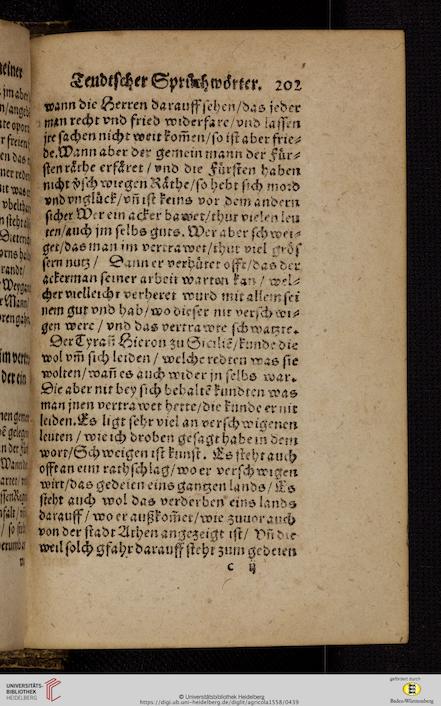 Teudtscher Sprichwörter. 202
wann die Herren darauff sehen/das jeder
man recht vnd fried widerfare/vnd lassen
jre sachen nicht weit kom̃en/so ist aber frie⸗
de. Wann aber der gemein mann der Für⸗
sten räthe erfäret / vnd die Fürsten haben
nicht v̈sch wiegen Räthe/so hebt sich mord
vnd vnglück/vñ ist keins vor dem andern
sicher Wer ein acker bawet/thut vielen leu
ten/auch jm selbs guts. Wer aber schwei⸗
get/das man im vertrawet/thut viel grös
sern nutz / Dann er verhütet offt/das der
ackerman seiner arbeit warten kan / wel⸗
cher vielleicht verheret wurd mit allem sei
nem gut vnd hab/wo dieser nit verschwi⸗
gen were / vnd das vertrawte schwatzte.
Der Tyrañ Hieron zu Sicilie/kunde die
wol vm̃ sich leiden / welche redten was sie
wolten/wañ es auch wider jn selbs war.
Die aber nit bey sich behaltẽ kundten was
man jnen vertrawet hette/die kunde er nit
leiden. Es ligt sehr viel an verschwigenen
leuten / wie ich droben gesagt habe in dem
wort/Schweigen ist kunst. Es steht auch
offt an eim rathschlag/wo er verschwigen
wirt/das gedeien eins gantzen lands / Es
steht auch wol das verderben eins lands
darauff / wo er außkom̃et/wie zuuor auch
von der stadt Athen angezeigt ist/ Vñ die
weil solch gfahr darauff steht zum gedeien
c ij
UNIVERSITÄTS-
BIBLIOTHEK
HEIDELBERG
© Universitätsbibliothek Heidelberg
https://digi.ub.uni-heidelberg.de/diglit/agricola1558/0439
gefördert durch
Baden-Württemberg